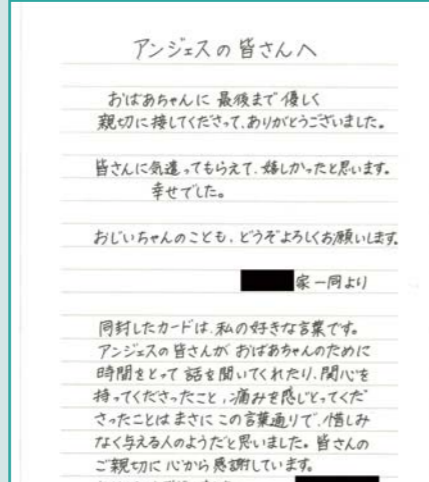 アンジェスの皆さんへ
おばあちゃんに 最後まで 優しく
親切に接してくださって、ありがとうございました。
皆さんに気遣ってもらえて、嬉しかったと思います。
幸せでした。
おじいちゃんのことも、どうぞよろしくお願いします。
家一同より
同封したカードは、私の好きな言葉です。
アンジェスの皆さんが おばあちゃんのために
時間をとって 話を聞いてくれたり、関心を
持ってくださったこと、痛みを感じとってくだ
さったことは まさに この言葉通りで、惜しみ
なく与える人のようだと思いました。皆さんの
ご親切に 心から感謝しています。